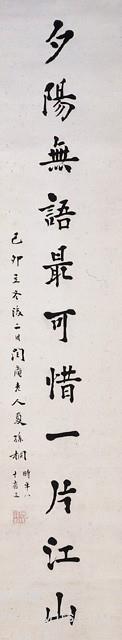 夕陽無語最可惜一片江山
己卯立冬後二日閏庵老人夏孫桐時年八
十有三